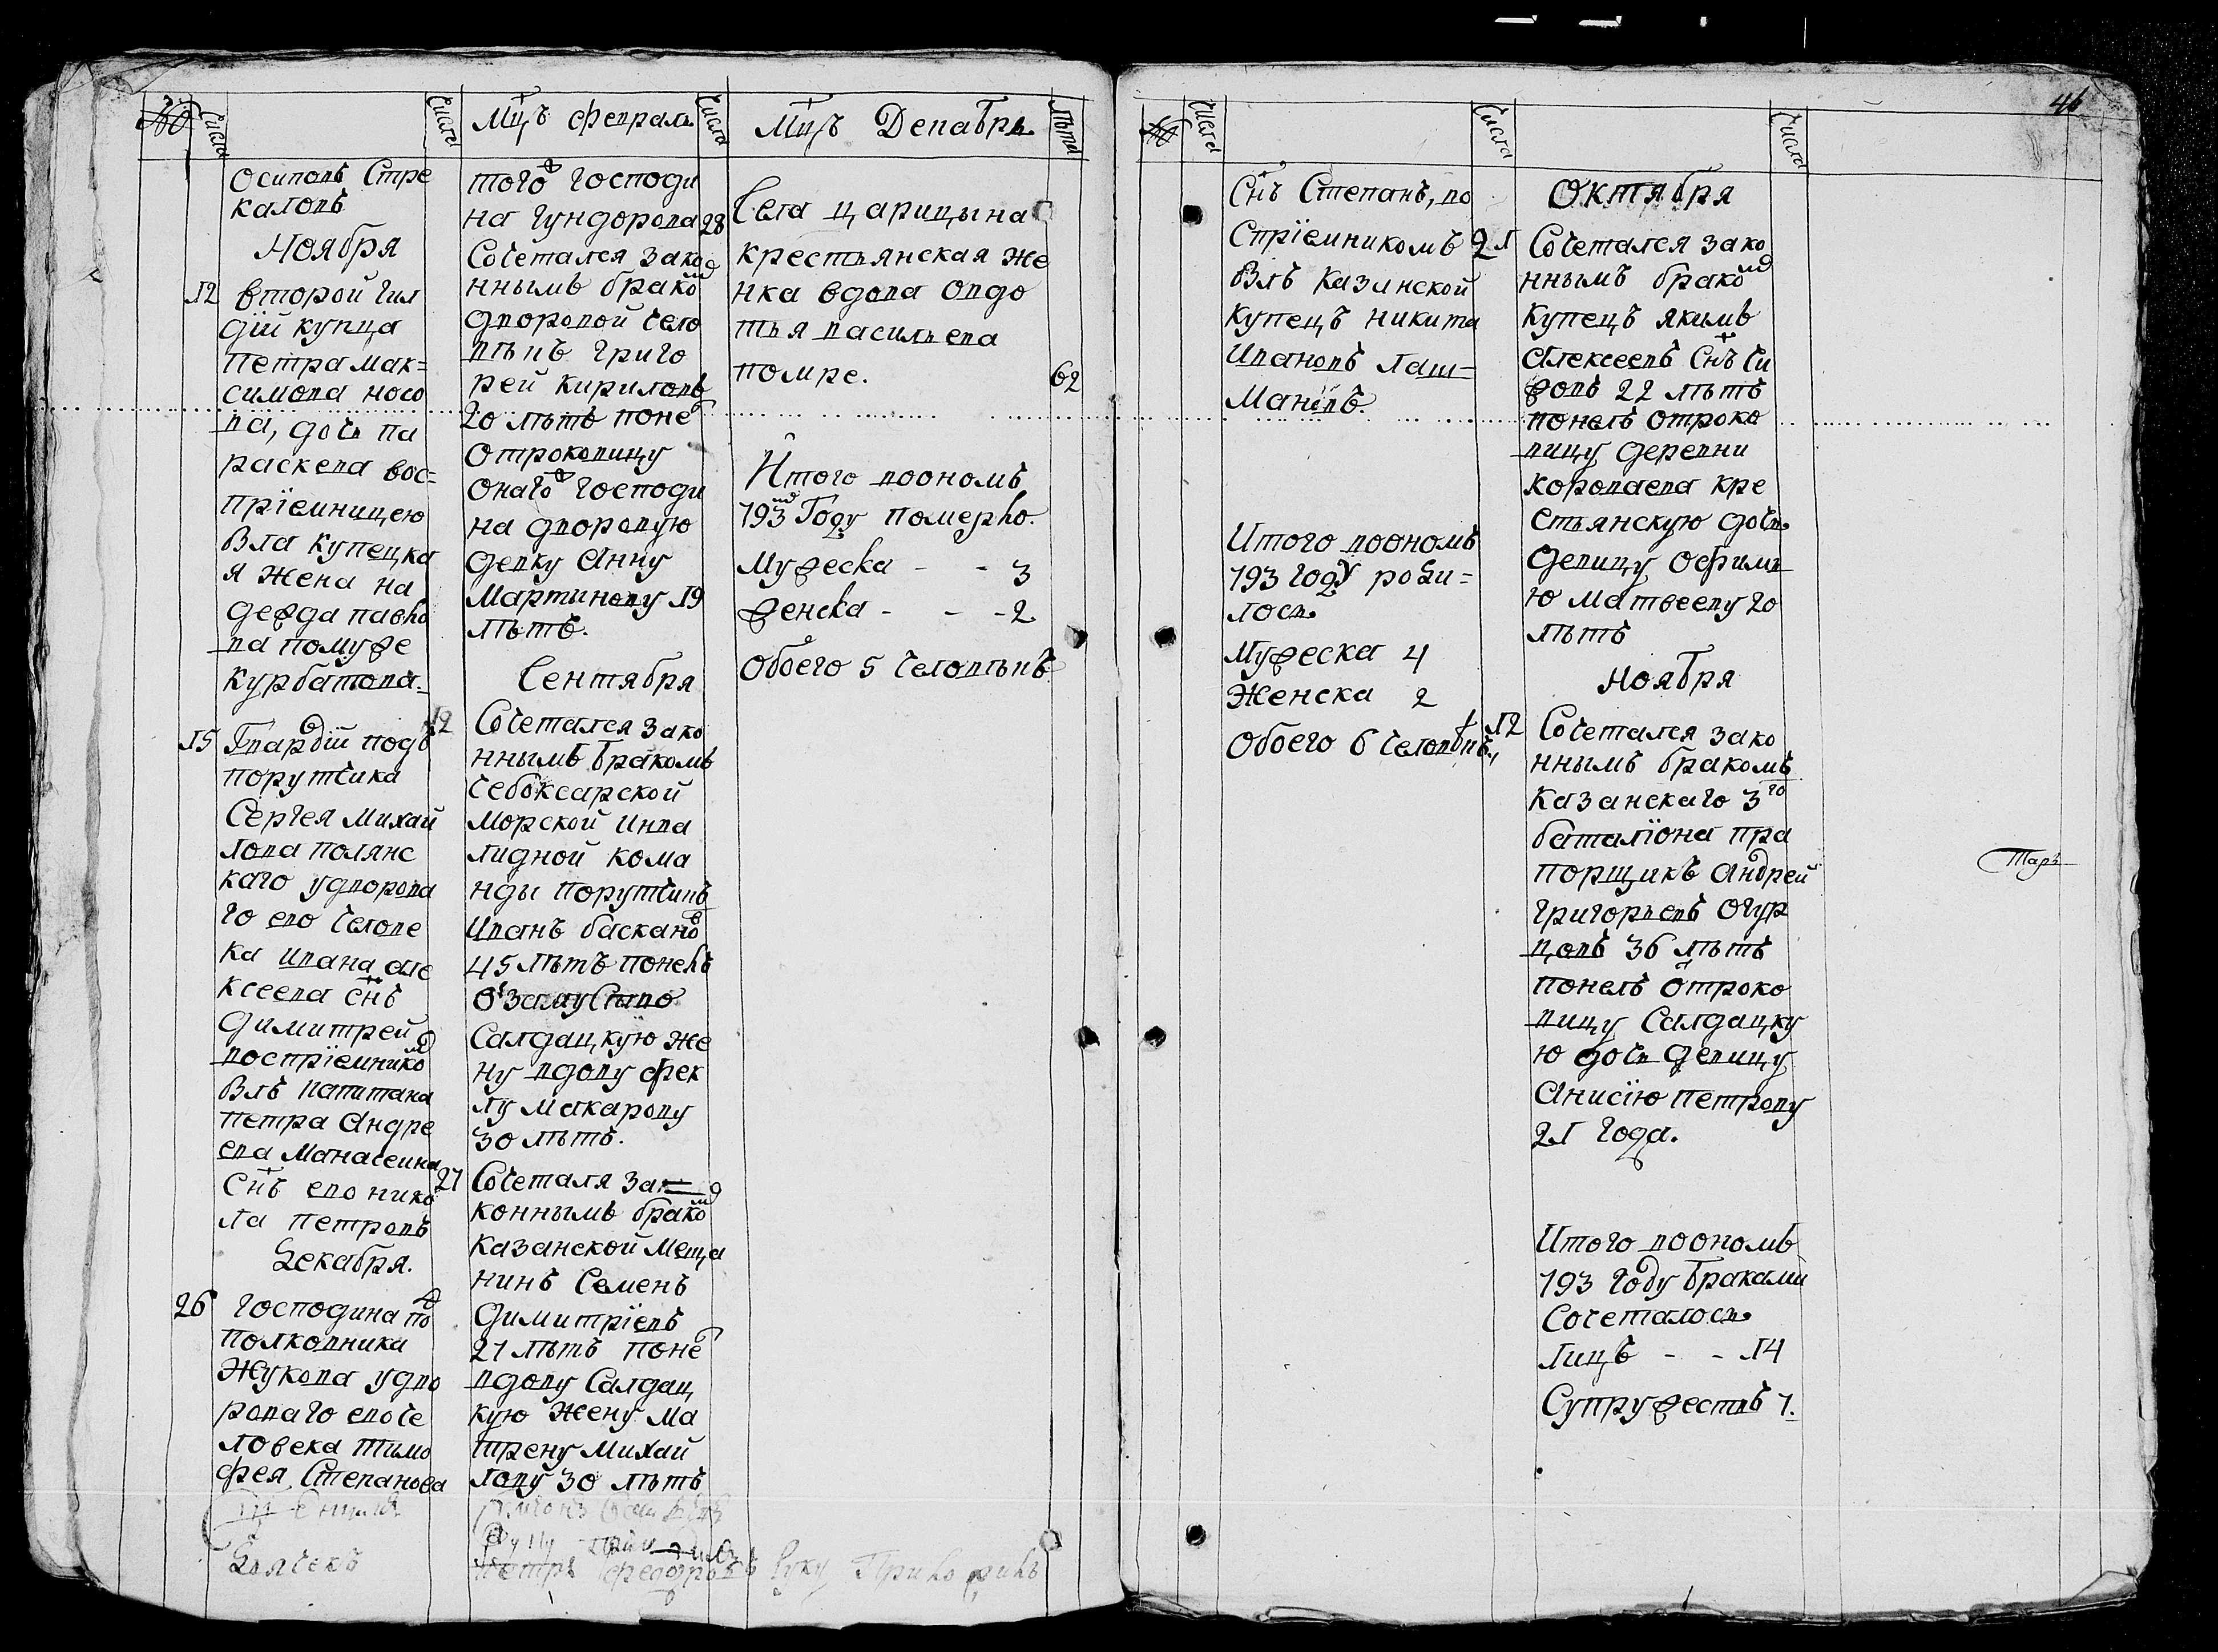 №
Числа
Числа
Мцъ Февраль
Числа
Мцъ Декабрь
Лѣта
Осиповъ Стре
каловъ
Ноября
12 Второй гил
дїи купца
Петра Мак=
симова носо
ва, дочь па
раскева вос=
прїемницею
Бла купецка
я жена на
дежда павло
ва помуже
курбатова.
15 Гвардїи подъ
порутчика
Сергея Михай
лова полянс
каго удворова
го ево челове
ка ивана але
ксеева снъ
Димитрей
воспрїемнико
Блъ капитана
петра Андре
ева Манасеина
снъ ево нико
ла петровъ
Декабря.
26 Господина по
полковника
Жукова удво
роваго ево че
ловека тимо
фея Степанова
того господи
на гундорова
28 Сочетался зако
ннымъ брако
дворовой чело
вѣкъ григо
рей кириловъ
20 лѣтъ поне
отроковицу
онаго господи
на дворовую
девку Анну
Мартынову 19
лѣтъ.
Сентября
12 Сочетался зако
ннымъ бракомъ
чебоксарской
морской инва
лидной кома
нды порутчикъ
Иванъ баскако
45 лѣтъ понелъ
Салдацкую же
ну вдову фек
лу макарову
30 лѣтъ.
27 Сочеталя зак
коннымъ брако
казанской меща
нинъ Семенъ
димитрїевъ
21 лѣтъ поне
вдову Салдац
кую жену ма
трену михай
лову 30 лѣтъ
Села царицына
крестьянская же
нка вдова овдо
тья васильева
помре. 62
Итого воономъ
793 году померло.
Мужеска - - 3
женска - - - 2
Обоего 5 человѣкъ
Дьячекъ
Петръ Федоровъ Руку Приложилъ
46
№
Числа
Числа
Числа
Снъ Степанъ, во
спрїемникомъ
Блъ Казанской
купецъ никита
Ивановъ Лаш=
мановъ.
Итого воономъ
793 году роди=
лось
Мужеска 4
Женска 2
Обоего 6 человѣкъ
Октября
21 Сочетался зако
ннымъ брако
купецъ якимъ
Алексеевъ Снъ чи
жовъ 22 лѣтъ
понелъ отроко
вицу деревни
короваева кре
стьянскую дочь
девицу офимь
ю матвееву 20
лѣтъ
Ноября
12 Сочетался зако
ннымъ бракомъ
казанскаго 3го
баталїона пра
порщикъ Андрей
григорьевъ огур
цовъ 36 лѣтъ
понелъ отроко
вицу Салдацку
ю дочь девицу
Анисїю петрову
21 года.
Итого воономъ
793 году браками
Сочеталось
Лицъ - - 14
Супружествъ 7.